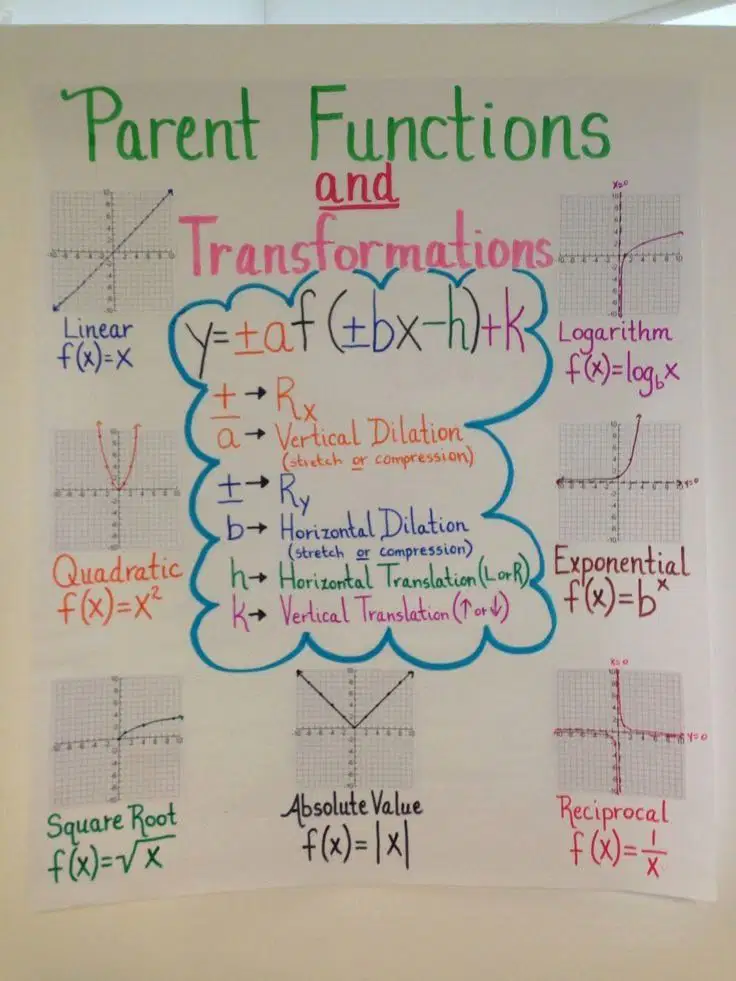 Parent Functions
and
Transformations
Linear
f(x)=x
Quadratic
f(x)=x²
Square Root
f(x)=√x
y=±af(±bx-h)+k
± → Rx
a → Vertical Dilation
(stretch or compression)
± → Ry
b → Horizontal Dilation
(stretch or compression)
h → Horizontal Translation (L or R)
k → Vertical Translation (↑ or ↓)
Absolute Value
f(x)=|x|
x=0
Logarithm
f(x)=log_b x
y=0
Exponential
f(x)=b^x
x=0
y=0
Reciprocal
f(x)=1/x